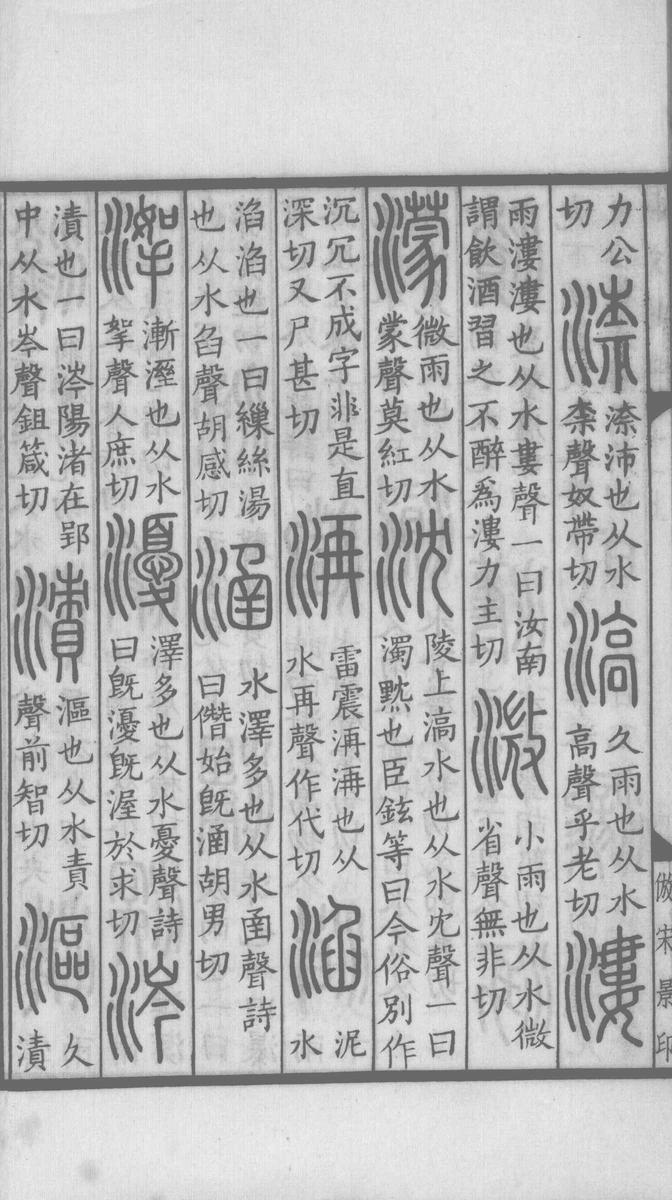 力公切渿渿沛也从水柰聲奴帶切滈久雨也从水高聲乎老切漊
雨漊漊也从水婁聲一曰汝南謂飲酒習之不醉爲漊力主切溦小雨也从水微省聲無非切
濛微雨也从水蒙聲莫紅切沈陵上滈水也从水冘聲一曰濁黕也臣鉉等曰今俗別作
沉冗不成字非是直深切又尸甚切洅雷震洅洅也从水再聲作代切淊泥水
淊淊也一曰繅絲湯也从水臽聲胡感切涵水澤多也从水圅聲詩曰僭始旣涵胡男切
漸溼也从水挐聲人庶切瀀澤多也从水憂聲詩曰旣瀀旣渥於求切涔
漬也一曰涔陽渚在郢中从水岑聲鉏箴切漬漚也从水責聲前智切漚久漬
倣宋景印